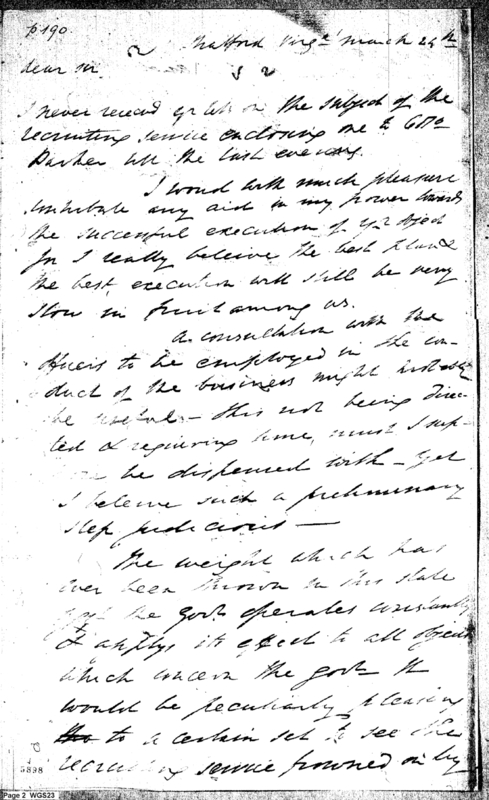 p190.
Stratford Virga March 24th
dear sir
I never received yr let. on the subject of the
recruiting service enclosing one to Col
Parker till the last evening.
I would with much pleasure
contribute any aid in my power towards
the successful execution of yr object
for I really beleive the best plan &
the best execution will still be very
slow in fruit among us.
a consultation with the
officers to be employed in the con-
duct of the business might probably
be useful - this not being direc-
ted & requiring time, must I sup-
be dispensed with - yet
I beleive such a preliminary
step judicious -
The weight which has
ever been thrown in this state
agst the govt operates constantly
& applys its effect to all objects
which concern the govt It
would be peculiarly pleasing
to a certain set to see the
recruiting service frowned on by
5898
Page 2 WGS23